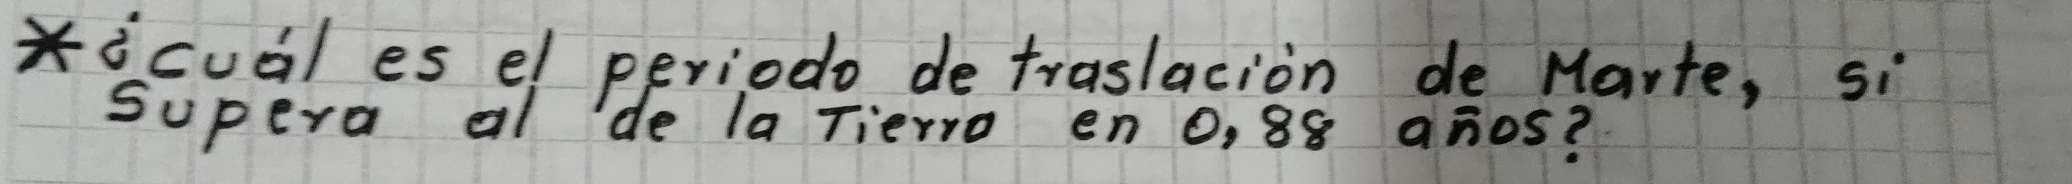 *¿cuál es el periodo de traslación de Marte, si
supera al de la Tierra en 0,88 años?